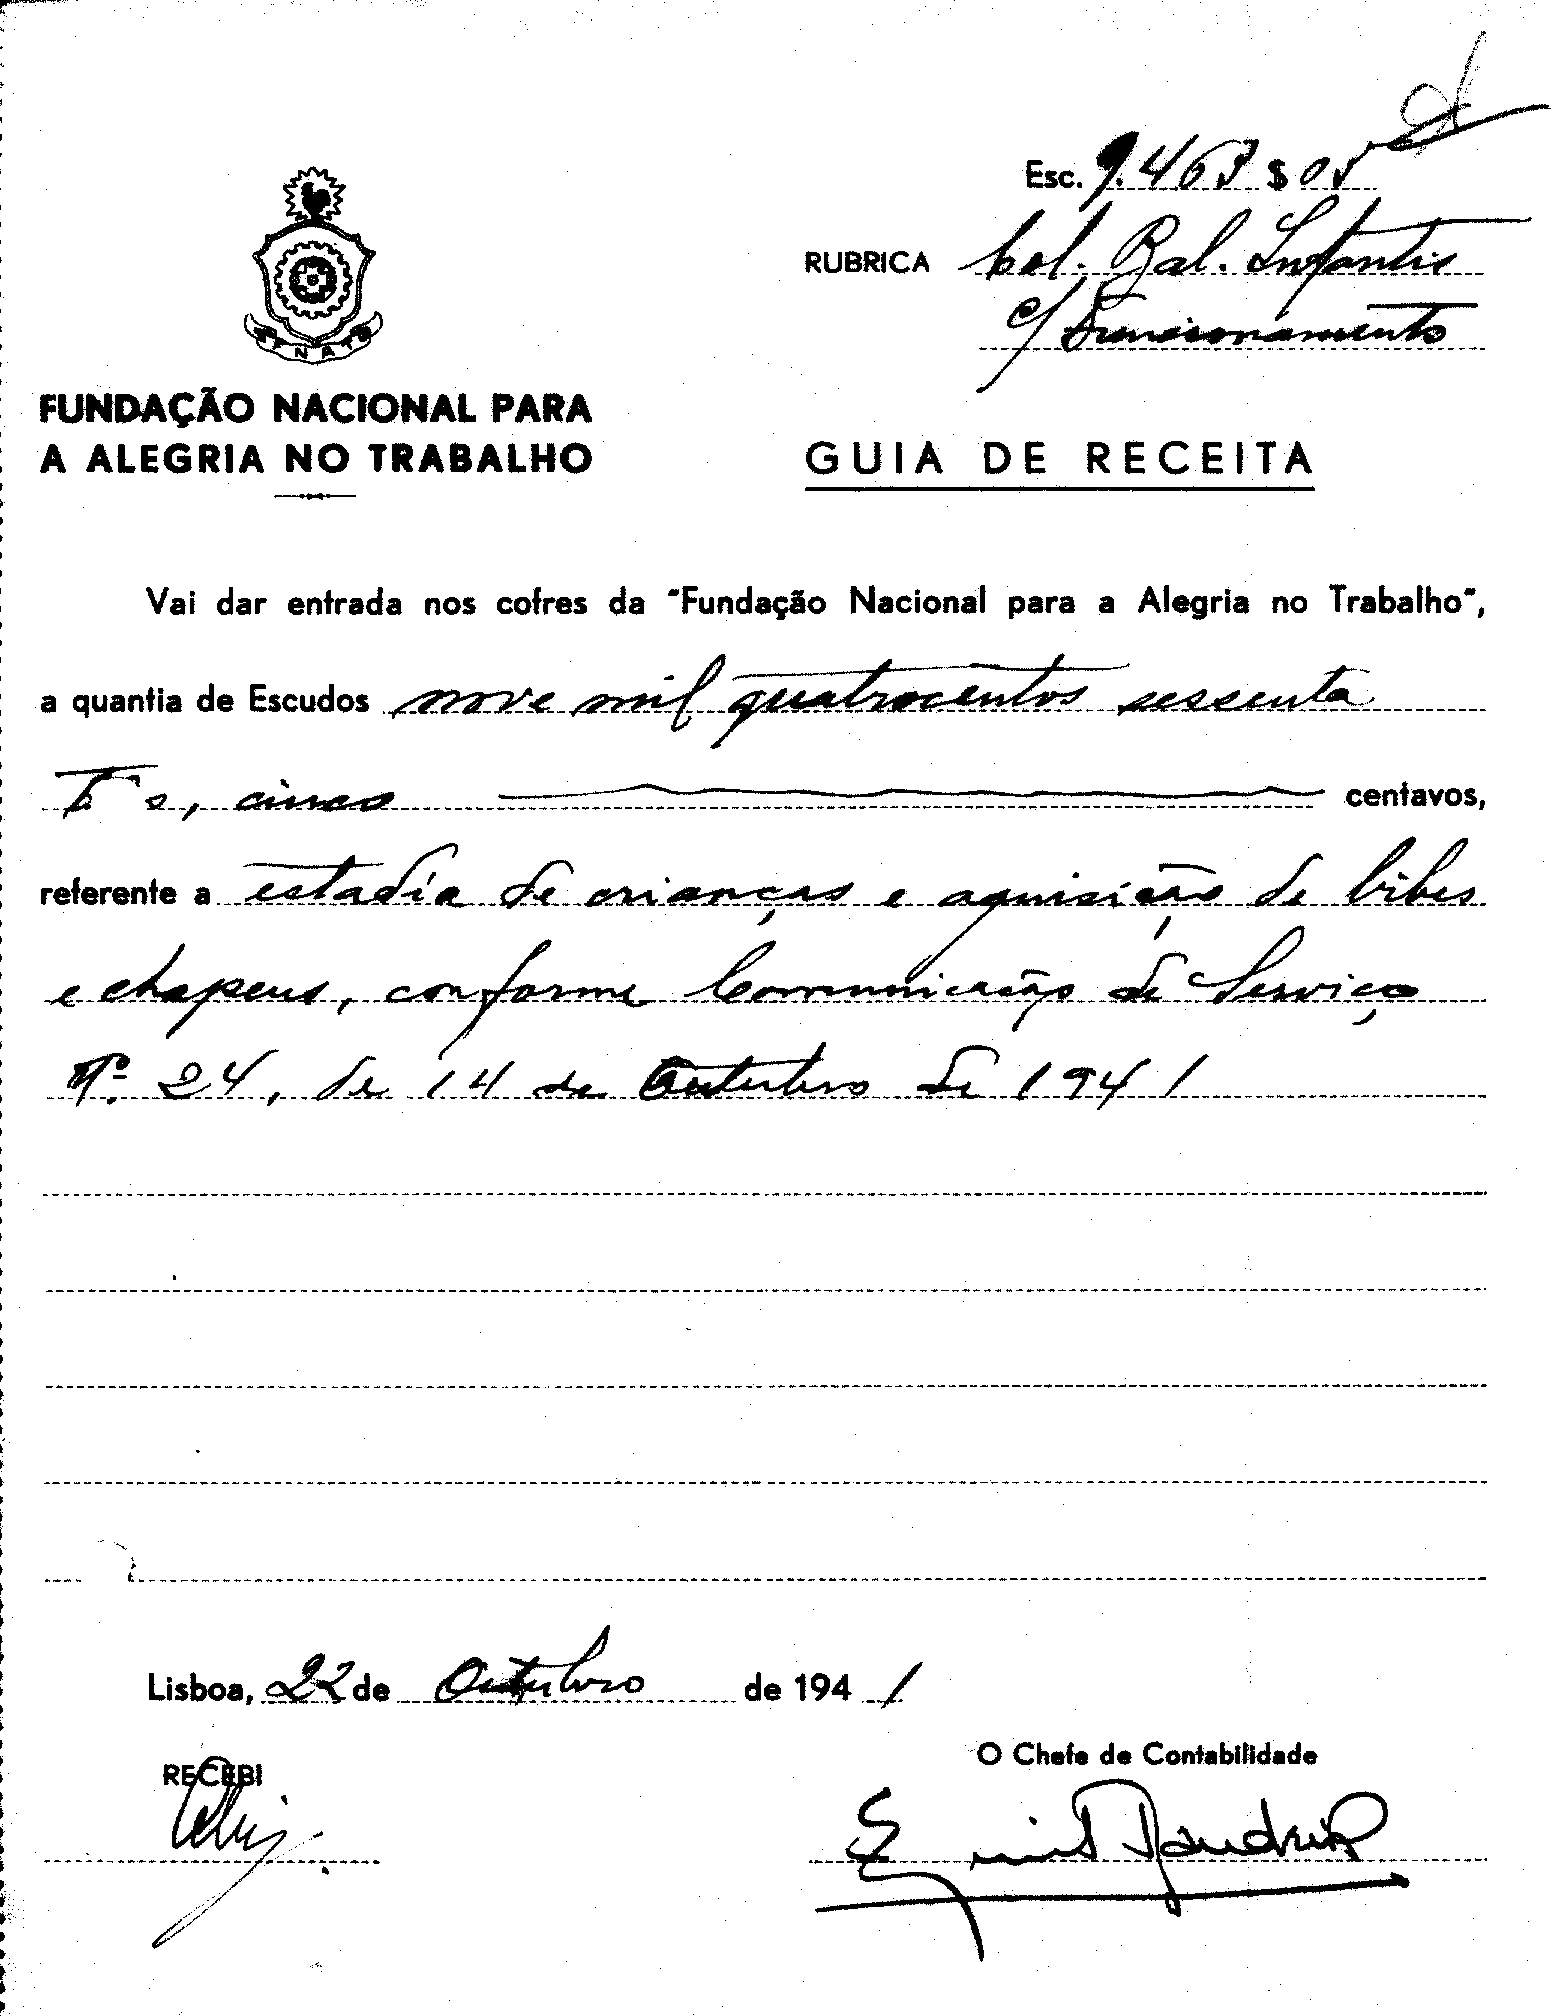 Esc. 9.463 $ 05
RUBRICA Col. Bal. Infantis
c/ Funcionamento
F N A T
FUNDAÇÃO NACIONAL PARA
A ALEGRIA NO TRABALHO
GUIA DE RECEITA
Vai dar entrada nos cofres da "Fundação Nacional para a Alegria no Trabalho",
a quantia de Escudos nove mil quatrocentos sessenta
e, cinco centavos,
referente a estadia de crianças e aquisição de bibes
e chapeus, conforme Comunicação de Serviço
Nº. 24, de 14 de Outubro de 1941
Lisboa, 22 de Outubro de 194 1
RECEBI
O Chefe de Contabilidade